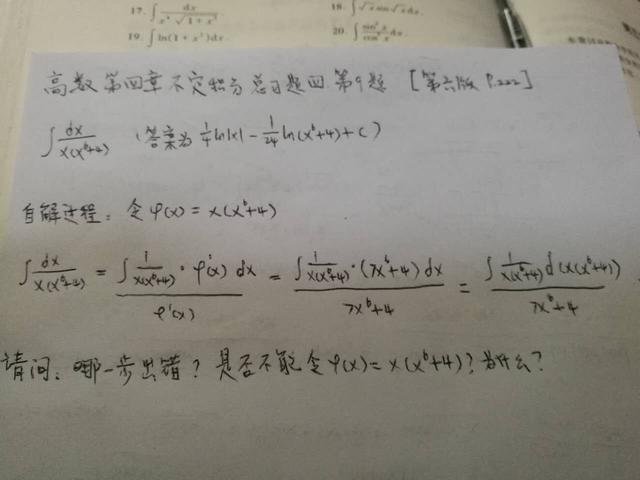 17. ∫ dx / x⁴√(1+x²)
18. ∫√x sin√x dx.
19. ∫ln(1+x²)dx.
20. ∫ sin²x / cos³x dx.
高数 第四章 不定积分 总习题四 第9题 [第六版 P.222]
∫ dx / x(x⁶+4) (答案为 1/4 ln|x| - 1/24 ln(x⁶+4)+C)
自解过程: 令φ(x)=x(x⁶+4)
∫ dx / x(x⁶+4) = ∫ 1/x(x⁶+4) · φ'(x) dx / φ'(x) = ∫ 1/x(x⁶+4) · (7x⁶+4) dx / 7x⁶+4 = ∫ 1/x(x⁶+4) d(x(x⁶+4)) / 7x⁶+4 .
请问: 哪一步出错? 是否不能令φ(x)=x(x⁶+4)? 为什么?